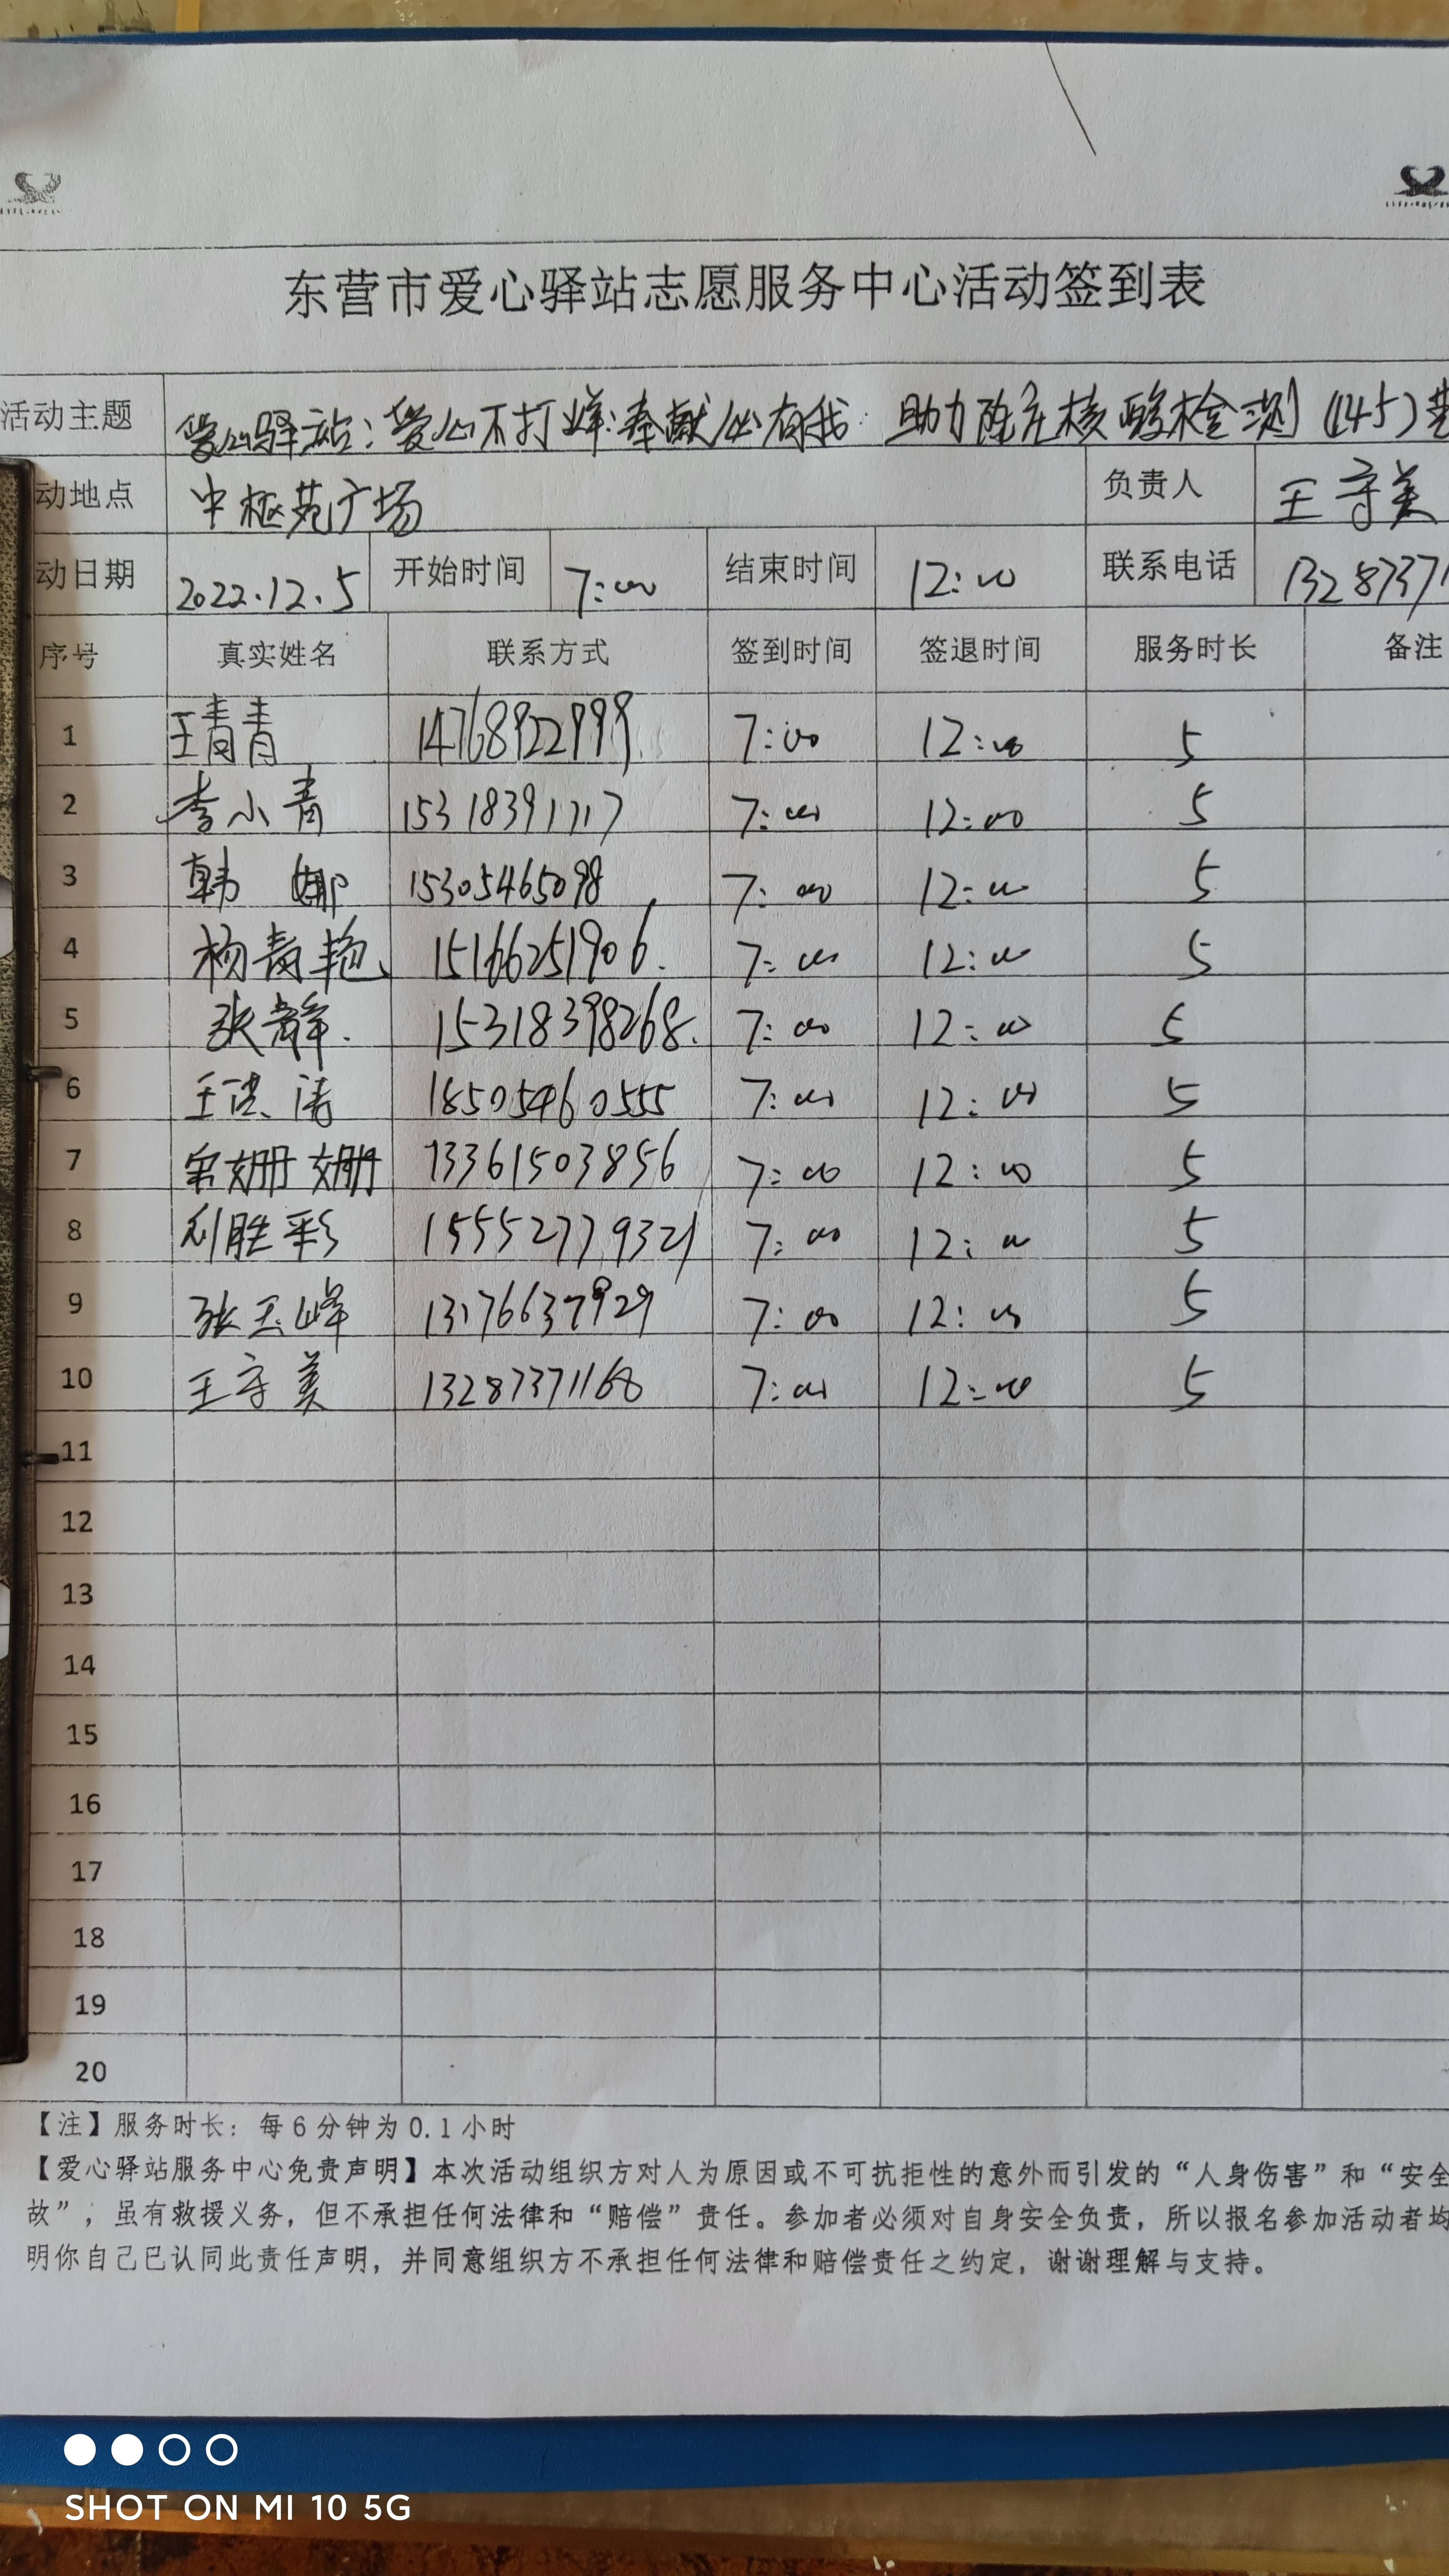 东营市爱心驿站志愿服务中心活动签到表
活动主题 爱心驿站:爱心不打烊:奉献心有我 助力陈庄核酸检测(145)
动地点 中枢苑广场 负责人 王守美
动日期 2022.12.5 开始时间 7:00 结束时间 12:00 联系电话 13287371
序号 真实姓名 联系方式 签到时间 签退时间 服务时长 备注
1 王青青 14768922999 7:00 12:00 5
2 李小青 15318391717 7:00 12:00 5
3 韩娜 15305465098 7:00 12:00 5
4 杨青艳 15166251906. 7:00 12:00 5
5 张静. 15318398268. 7:00 12:00 5
6 王洪涛 18505460555 7:00 12:00 5
7 宋姗姗 13361503856 7:00 12:00 5
8 刘胜彩 15552779321 7:00 12:00 5
9 张玉峰 13176637929 7:00 12:00 5
10 王守美 13287371168 7:00 12:00 5
11
12
13
14
15
16
17
18
19
20
【注】服务时长:每6分钟为0.1小时
【爱心驿站服务中心免责声明】本次活动组织方对人为原因或不可抗拒性的意外而引发的“人身伤害”和“安全
故”,虽有救援义务,但不承担任何法律和“赔偿”责任。参加者必须对自身安全负责,所以报名参加活动者均
明你自己已认同此责任声明,并同意组织方不承担任何法律和赔偿责任之约定,谢谢理解与支持。
SHOT ON MI 10 5G